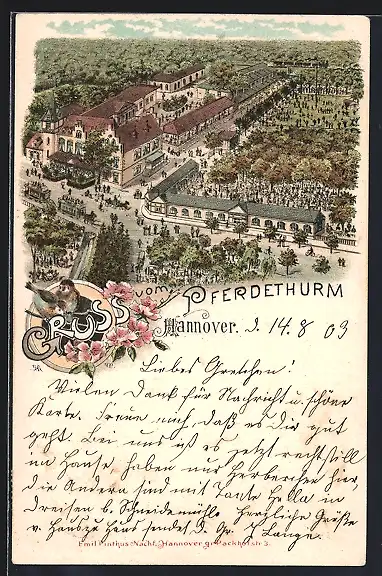 GRUSS vom PFERDETHURM
Hannover. d. 14. 8 03
Liebes Gretchen!
Vielen Dank für Nachricht u. schöne
Karte. Freue mich, daß es Dir gut
geht. Bei uns ist es jetzt recht still
im Hause, haben nur Herberger hier,
die Andern sind mit Tante Hella in
Dreisen b. Schneidemühle. Herzliche Grüße
v. Haus zu Haus sendet d. Gr. Lange.
Emil Pinthus Nachf., Hannover gr. Packhofstr. 3.